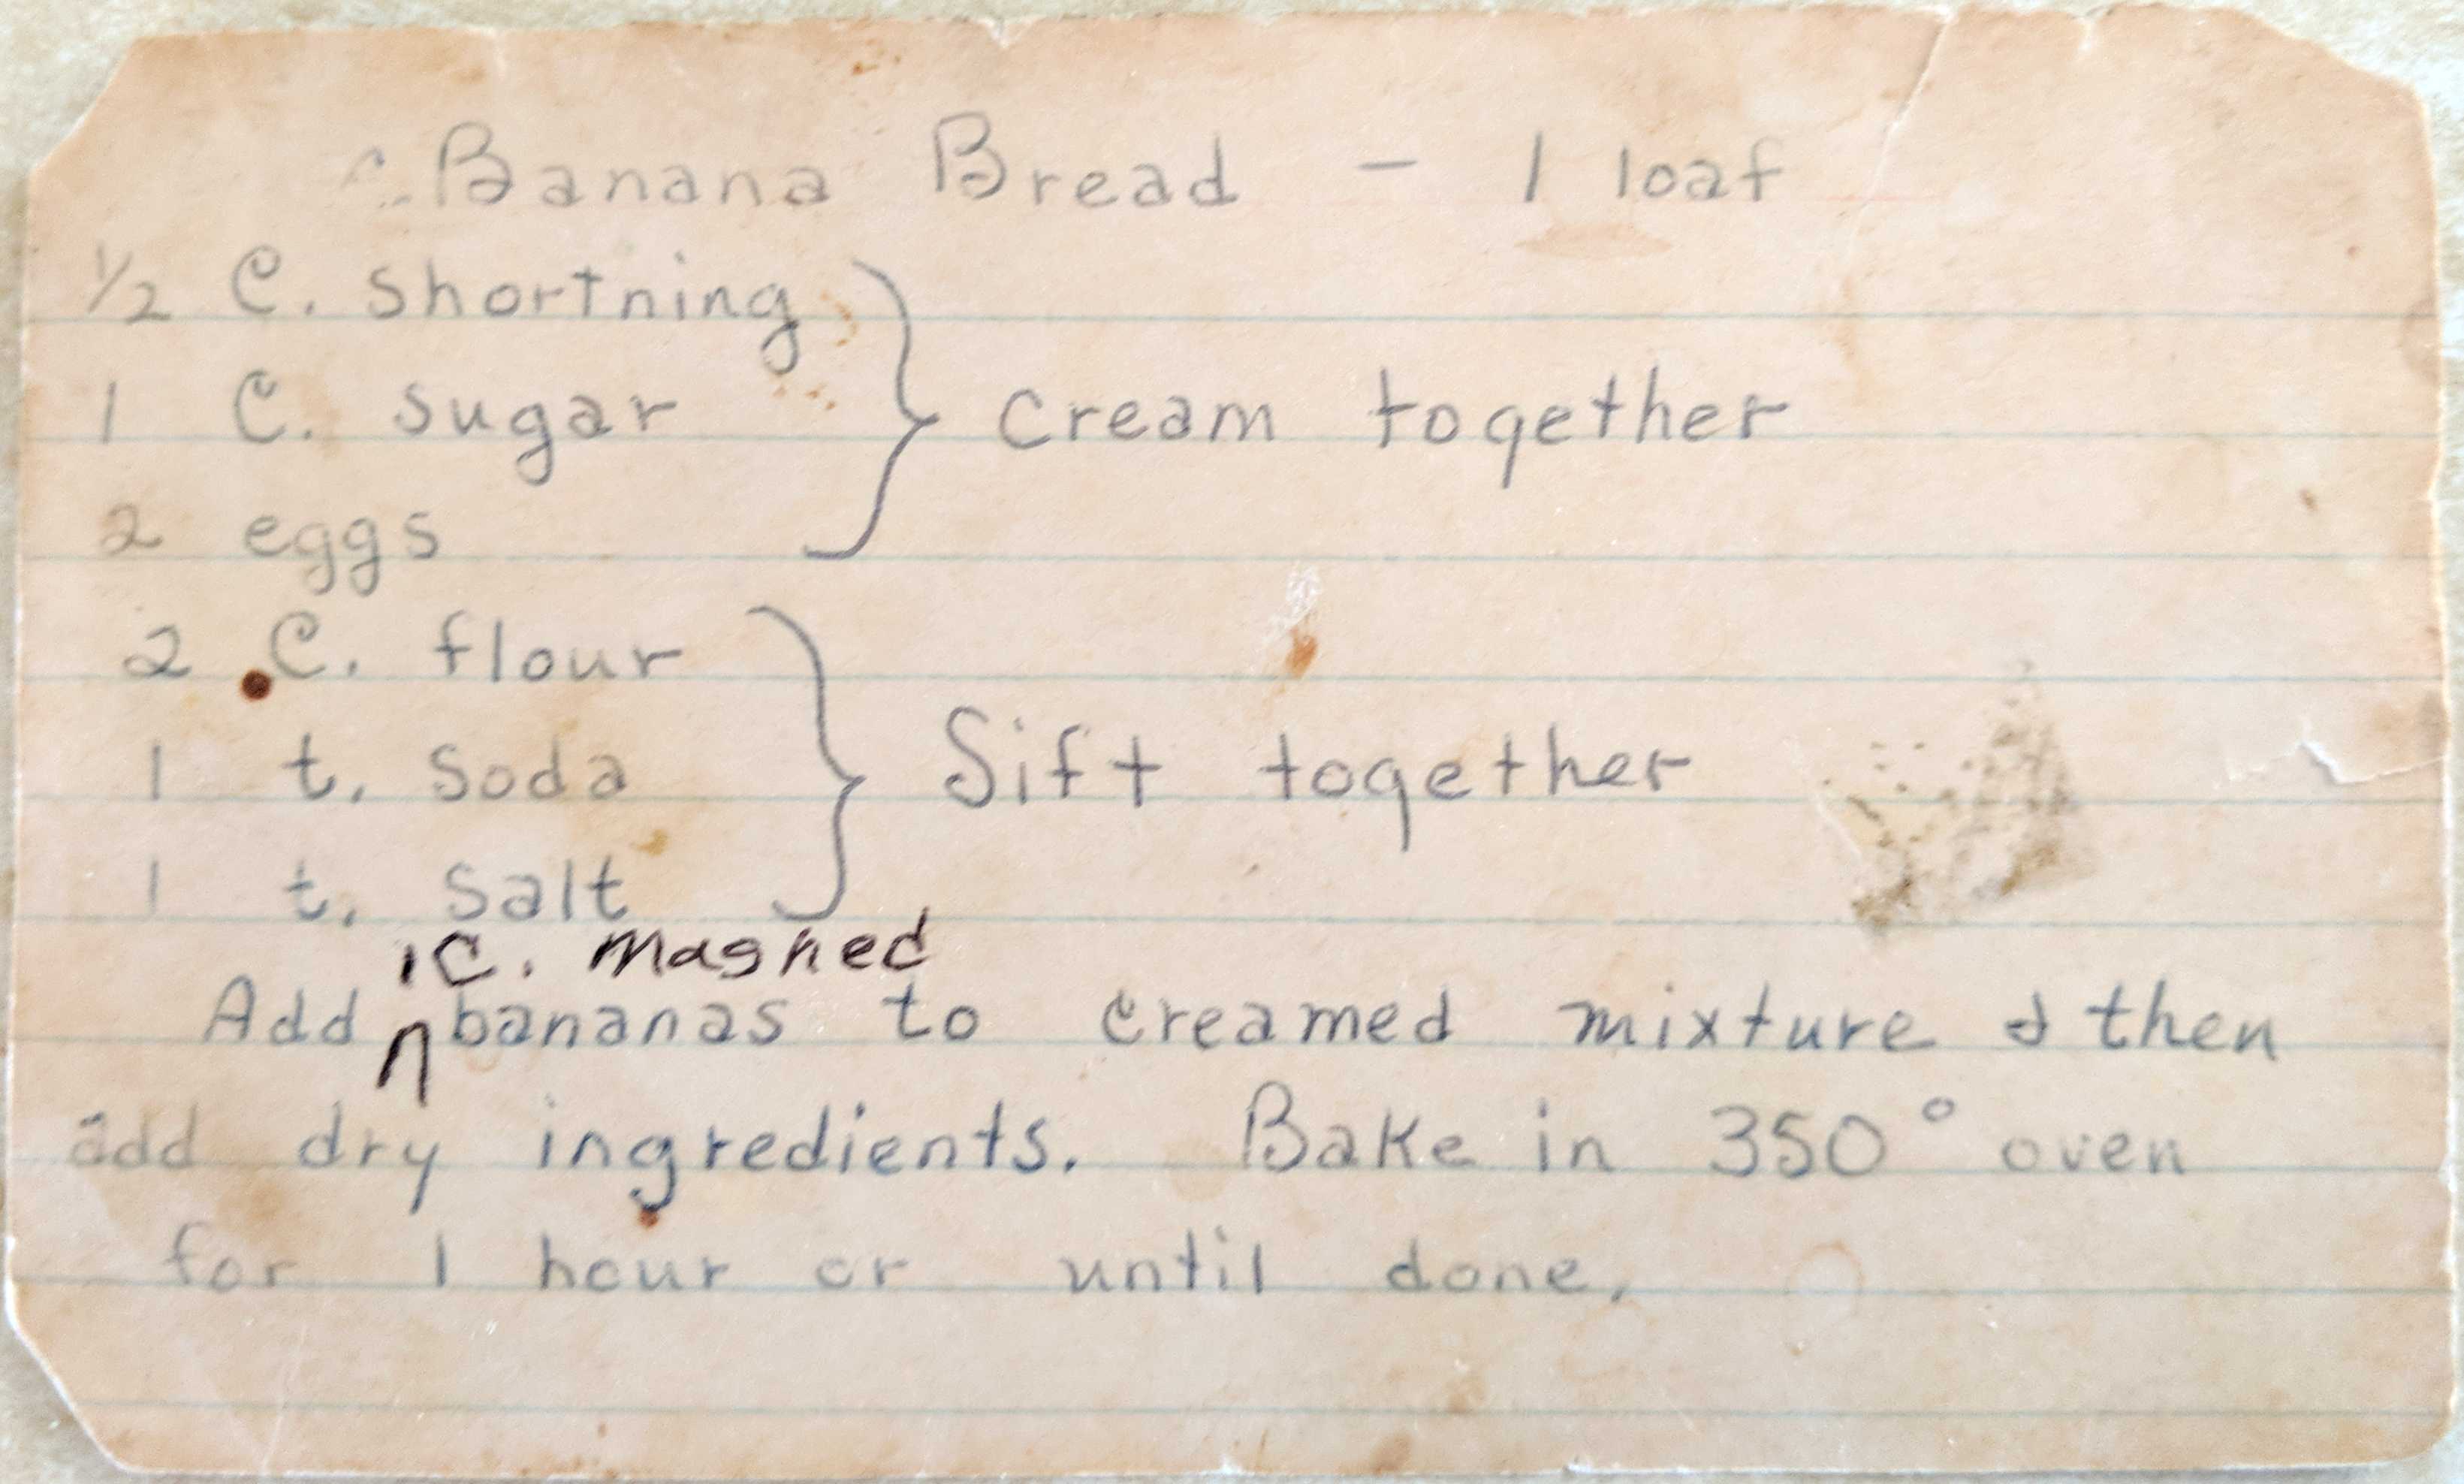 Banana Bread - 1 loaf
½ C. shortning
1 C. sugar
2 eggs
cream together
2 C. flour
1 t. soda
1 t. salt
Sift together
1 C. mashed
Add bananas to creamed mixture & then
add dry ingredients. Bake in 350° oven
for 1 hour or until done.